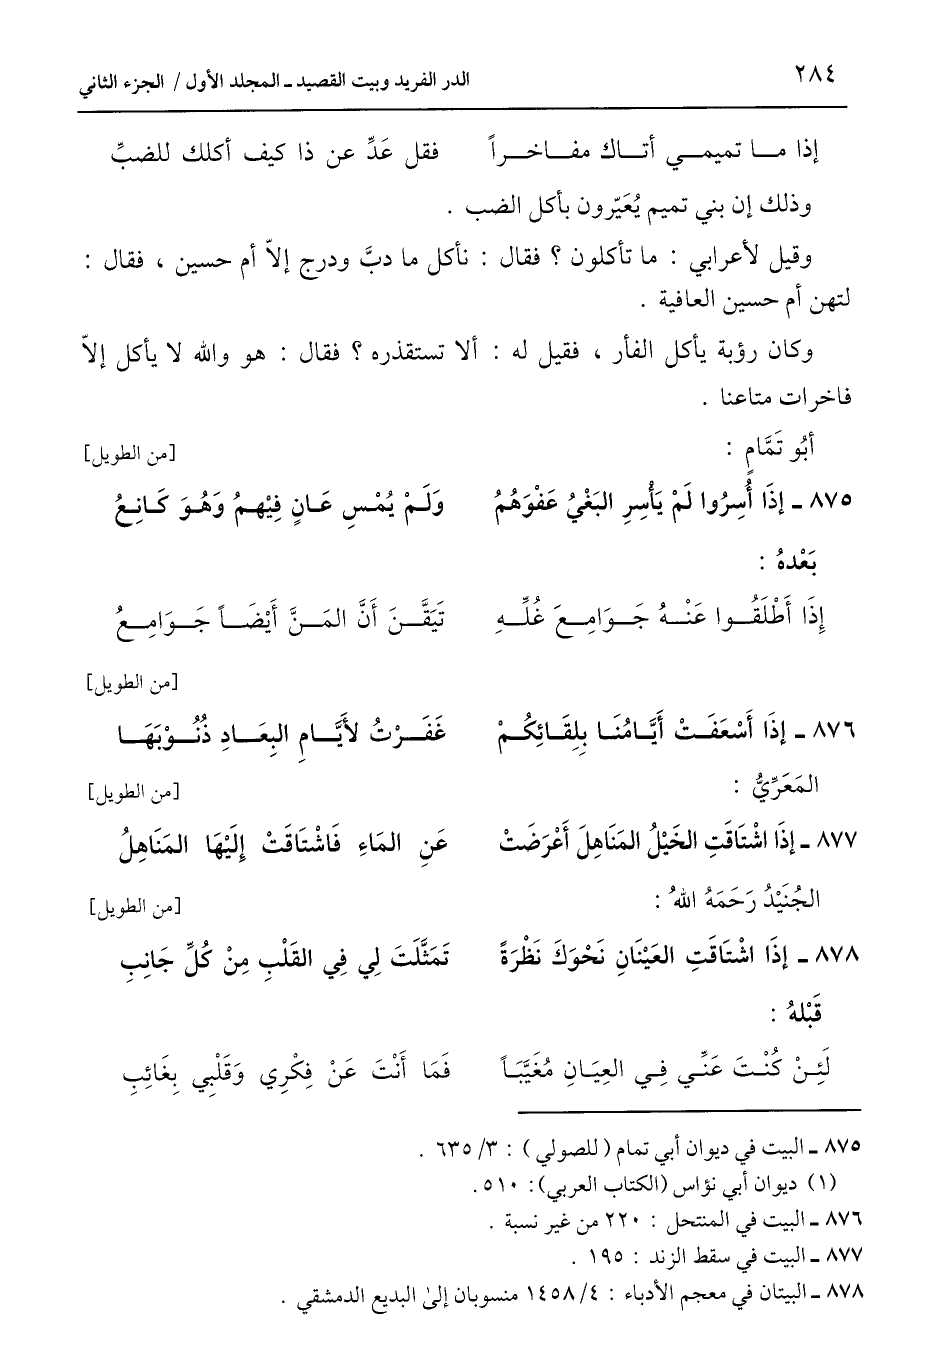 ٢٨٤
الدر الفريد وبيت القصيد ـ المجلد الأول / الجزء الثاني
إذا ما تميمي أتاك مفاخراً فقل عَدِّ عن ذا كيف أكلك للضبِّ
وذلك إن بني تميم يُعَيّرون بأكل الضب .
وقيل لأعرابي : ما تأكلون ؟ فقال : نأكل ما دبَّ ودرج إلاّ أم حسين ، فقال :
لتهن أم حسين العافية .
وكان رؤبة يأكل الفأر ، فقيل له : ألا تستقذره ؟ فقال : هو والله لا يأكل إلاّ
فاخرات متاعنا .
أَبُو تَمَّامٍ : [من الطويل]
٨٧٥ ـ إِذَا أُسِرُوا لَمْ يَأْسِرِ البَغْيُ عَفْوَهُمُ وَلَمْ يُمْسِ عَانٍ فِيْهِمُ وَهُوَ كَانِعُ
بَعْدهُ :
إِذَا أَطْلَقُوا عَنْهُ جَوَامِعَ غُلِّهِ تَيَقَّنَ أَنَّ المَنَّ أَيْضَاً جَوَامِعُ
[من الطويل]
٨٧٦ ـ إِذَا أَسْعَفَتْ أَيَّامُنَا بِلِقَائِكُمْ غَفَرْتُ لأَيَّامِ البِعَادِ ذُنُوْبَهَا
المَعَرِّيُّ : [من الطويل]
٨٧٧ ـ إِذَا اشْتَاقَتِ الخَيْلُ المَنَاهِلَ أَعْرَضَتْ عَنِ المَاءِ فَاشْتَاقَتْ إِلَيْهَا المَنَاهِلُ
الجُنَيْدُ رَحَمَهُ اللهُ : [من الطويل]
٨٧٨ ـ إِذَا اشْتَاقَتِ العَيْنَانِ نَحْوَكَ نَظْرَةً تَمَثَّلَتَ لِي فِي القَلْبِ مِنْ كُلِّ جَانِبِ
قَبْلهُ :
لَئِنْ كُنْتَ عَنِّي فِي العِيَانِ مُغَيَّبَاً فَمَا أَنْتَ عَنْ فِكْرِي وَقَلْبِي بِغَائِبِ
٨٧٥ ـ البيت في ديوان أبي تمام (للصولي) : ٣/ ٦٣٥ .
(١) ديوان أبي نؤاس (الكتاب العربي): ٥١٠.
٨٧٦ ـ البيت في المنتحل : ٢٢٠ من غير نسبة .
٨٧٧ ـ البيت في سقط الزند : ١٩٥ .
٨٧٨ ـ البيتان في معجم الأدباء : ٤/ ١٤٥٨ منسوبان إلىٰ البديع الدمشقي .